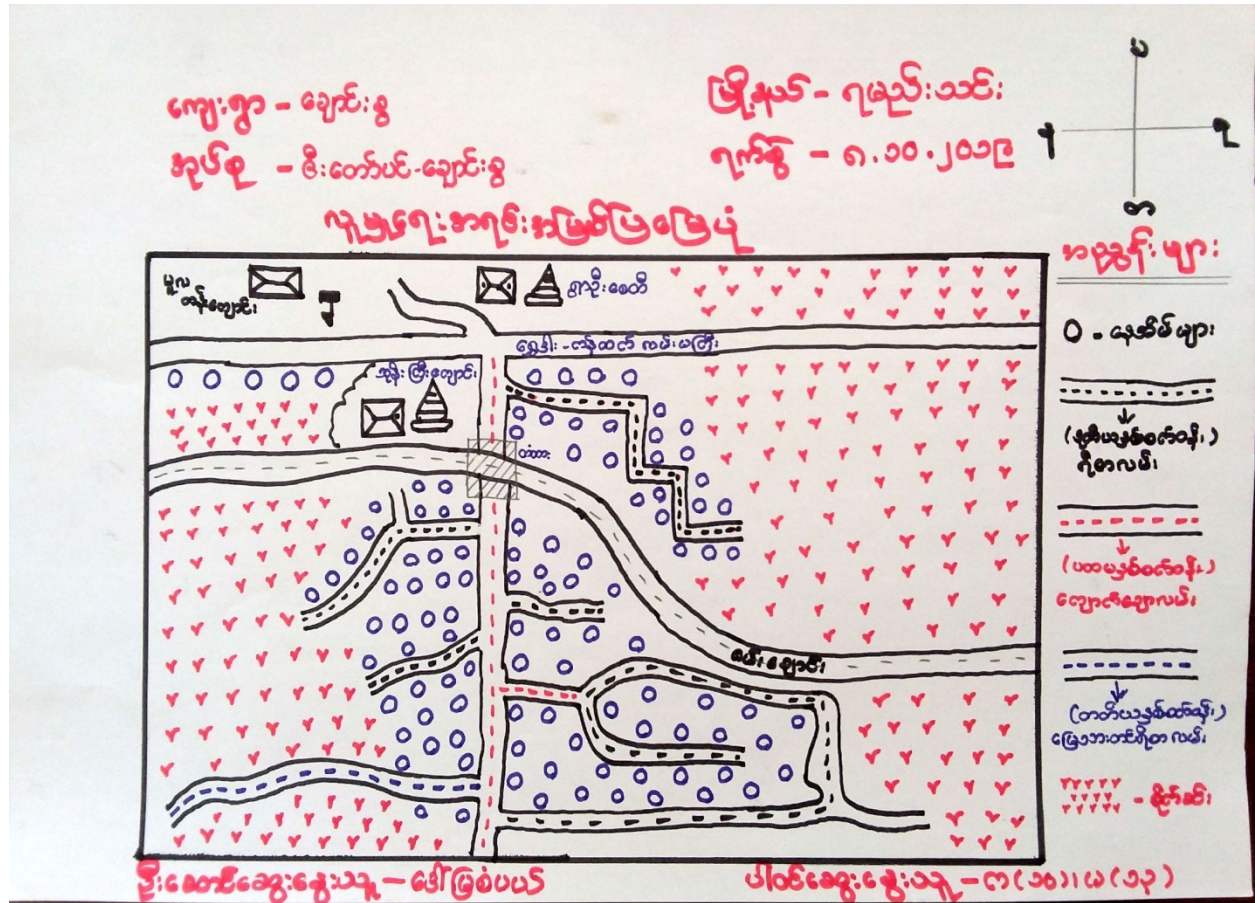 ကျေးရွာ - ချောင်းစွ
အုပ်စု - ဇီးတော်ပင်-ချောင်းစွ
မြို့နယ် - ရမည်းသင်း
ရက်စွဲ - ၈.၁၀.၂၀၁၉
လူမှုရေးအရင်းအမြစ်ပြမြေပုံ
မ
န
ရ
တ
အညွှန်းများ
မူလ
တန်းကျောင်း
ဥစေတီ
ရွှေဒါး - လမ်းမကြီး
ဘုန်းကြီးကျောင်း
တံတား
စမ်းချောင်း
၀ - နေအိမ်များ
(ဒုတိယနှစ်စက်တန်း)
ရိုးစာလမ်း
(ပထမနှစ်စက်တန်း)
ကျောက်ချောလမ်း
(တတိယနှစ်စက်တန်း)
မြေသားတင်ရိုးစာလမ်း
- စိုက်ခင်း
ဦးဆောင်ဆွေးနွေးသူ - ဒေါ်မြစံပယ်
ပါဝင်ဆွေးနွေးသူ - က(၁၀)၊ မ(၁၃)